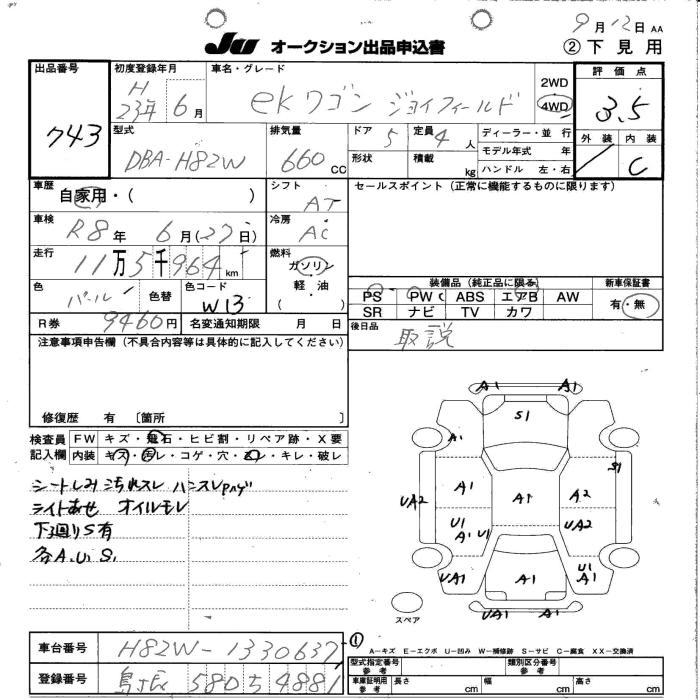 9月12日 AA
JU オークション出品申込書 ②下見用
出品番号 743
初度登録年月 H23年6月
車名・グレード ekワゴン ジョイフィールド
2WD
4WD
評価点 3.5
外装 内装 C
型式 DBA-H82W
排気量 660cc
ドア 5
定員 4人
形状
積載 kg
ディーラー・並行
モデル年式 年
ハンドル 左・右
車歴 自家用・( )
シフト AT
セールスポイント(正常に機能するものに限ります)
車検 R8年6月(27日)
冷房 AC
走行 11万5千964km
燃料 ガソリン
軽・油
( )
色 パール 色替
色コード W13
装備品(純正品に限る)
新車保証書
PS PW ABS エアB AW
SR ナビ TV カワ
有・無
R券 9460円
名変通知期限 月 日
後日品 取説
注意事項申告欄(不具合内容等は具体的に記入してください)
修復歴 有 [箇所 ]
検査員記入欄
FW キズ・飛石・ヒビ割・リペア跡・X要
内装 キズ・汚レ・コゲ・穴・・キレ・破レ
シートしみ 汚れスレ ハンスレハゲ
ライトあせ オイルモレ
下廻りS有
各A.U.S.
A1 A1
S1
A1
S1
A1 A1 A2
UA2 UA2
U1 A1 U1 UA2
UA1 A1 U1 A1
UA1 A1
スペア
①
A-キズ E-エクボ U-凹み W-補修跡 S-サビ C-腐食 XX-交換済
車台番号 H82W-1330637
登録番号 580 ち 4881
型式指定番号 参考
類別区分番号 参考
車庫証明用 参考
長さ cm 幅 cm 高さ cm